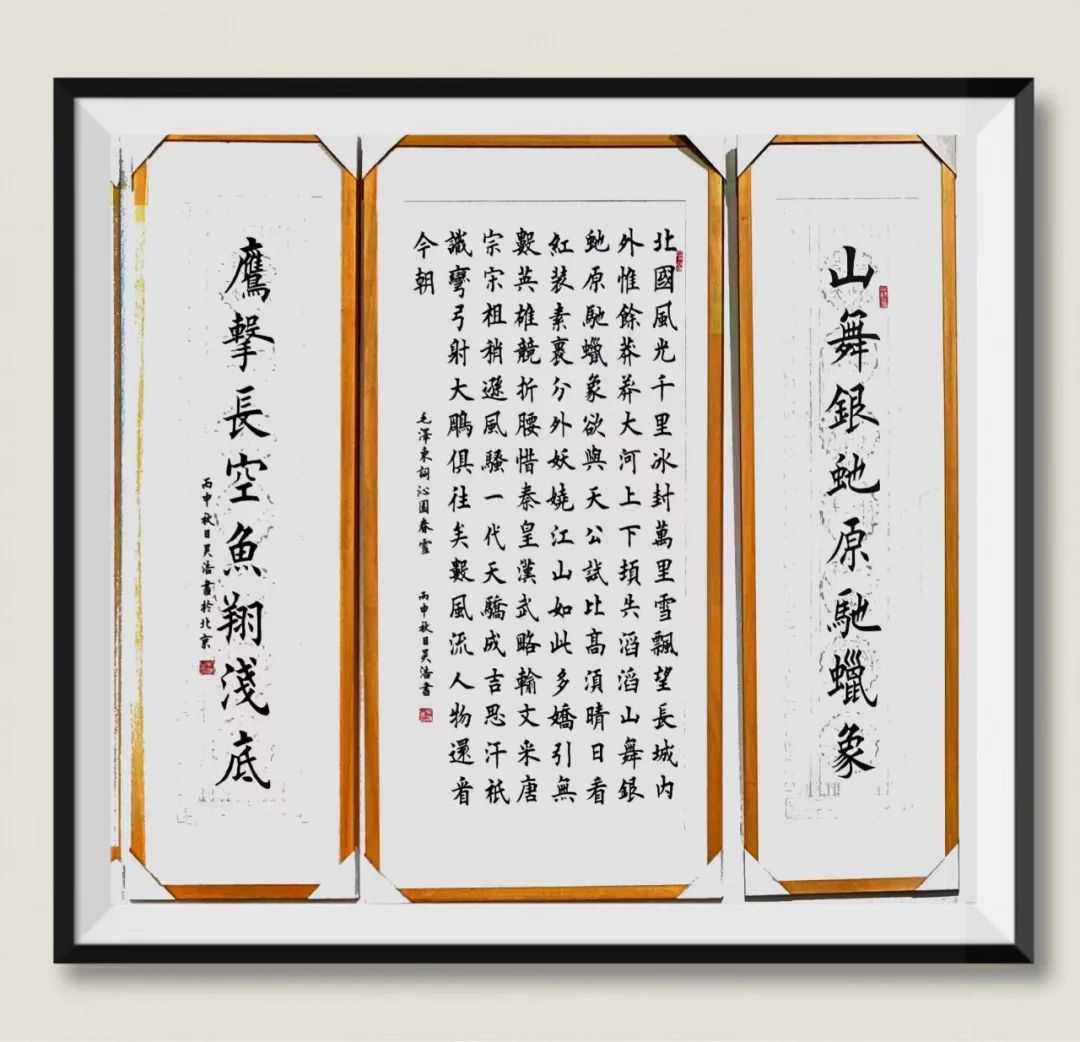 山舞銀虵原馳蠟象
北國風光千里冰封萬里雪飄望長城内
外惟餘莽莽大河上下頓失滔滔山舞銀
虵原馳蠟象欲與天公試比高湏晴日看
紅裝素裹分外妖嬈江山如此多嬌引無
數英雄競折腰惜秦皇漢武略輸文采唐
宗宋祖稍遜風騷一代天驕成吉思汗祇
識彎弓射大鵰俱往矣數風流人物還看
今朝
毛澤東詞沁園春雪 丙申秋日吴書
鷹擊長空魚翔淺底
丙申秋日吴書於北京